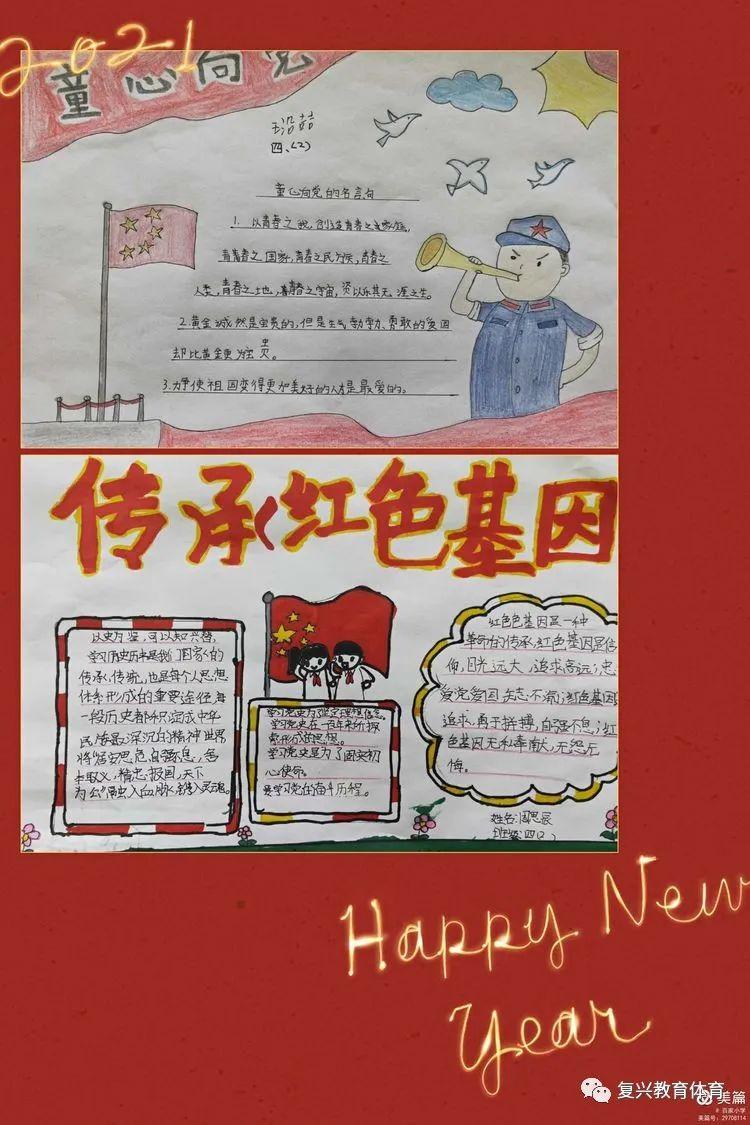 2021
童心向党
四、(2)
童心向党的名言句
1. 以青春之我,创造青春之家庭,
青春之国家,青春之民族,青春之
人类,青春之土地,青春之宇宙,资以乐其无涯之生。
2.黄金诚然是宝贵的,但是生气勃勃、勇敢的爱国
却比黄金更为宝贵。
3.为使祖国变得更加美好的人才是最爱的。
传承红色基因
以史为鉴,可以知兴替。
学习历史历来是我们国家的
传承,传统,也是每个人思想
体系形成的重要途径,每
一段历史都不只润成中华
民族最深沉的精神世界
将"居安思危,自强不息,舍
生取义,精忠报国,天下
为公"融入血脉,铸入灵魂。
学习党史为坚定理想信念。
学习党史在一百年来所探
索形成的思想。
学习党史是为了固央初
心使命。
要学习党在奋斗历程。
红色色基因是一种
革命的传承,红色基因是信
仰,目光远大,追求高远;忠
爱党爱国,矢志不渝;红色基因
追求,勇于拼搏,自强不息;红
色基因无私奉献,无怨无
悔。
姓名:周思辰
班级:四(2)
Happy New
Year
复兴教育体育
美篇
# 百家小学
美篇号:29708114